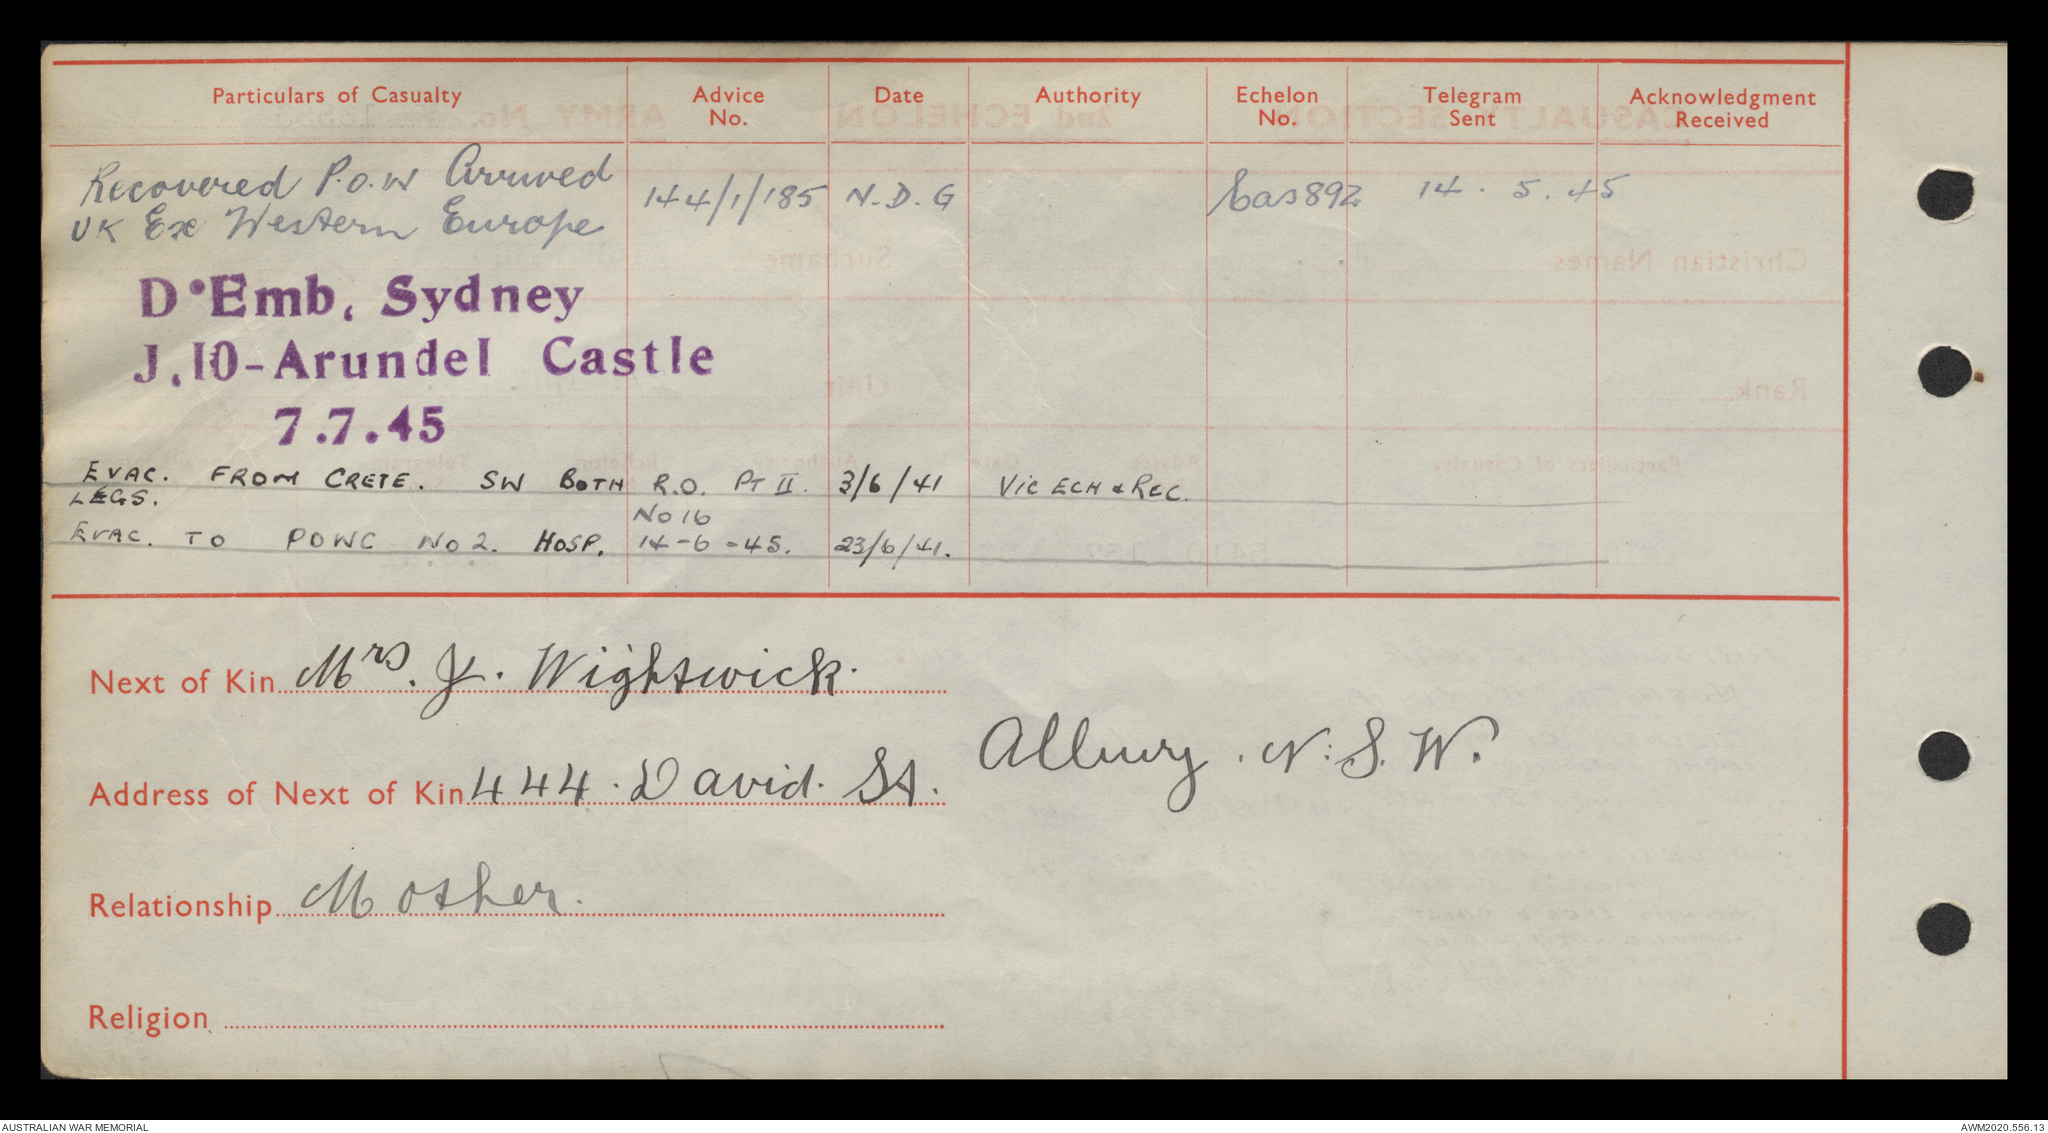 Particulars of Casualty
Advice No.
Date
Authority
Echelon No.
Telegram Sent
Acknowledgment Received
Recovered P.O.W Arrived 144/1/185 N.D.G Cas892 14. 5. 45
UK Ex Western Europe
D'Emb, Sydney
J.10-Arundel Castle
7.7.45
EVAC. FROM CRETE. SW BOTH R.O. PT II. 3/6/41 VIC ECH & REC.
LEGS. No 16
EVAC. TO POWC No 2. HOSP. 14-6-45. 23/6/41.
Next of Kin Mrs. J. Wightwick.
Address of Next of Kin 444. David. St. Albury. N.S.W.
Relationship Mother.
Religion
AUSTRALIAN WAR MEMORIAL
AWM2020.556.13